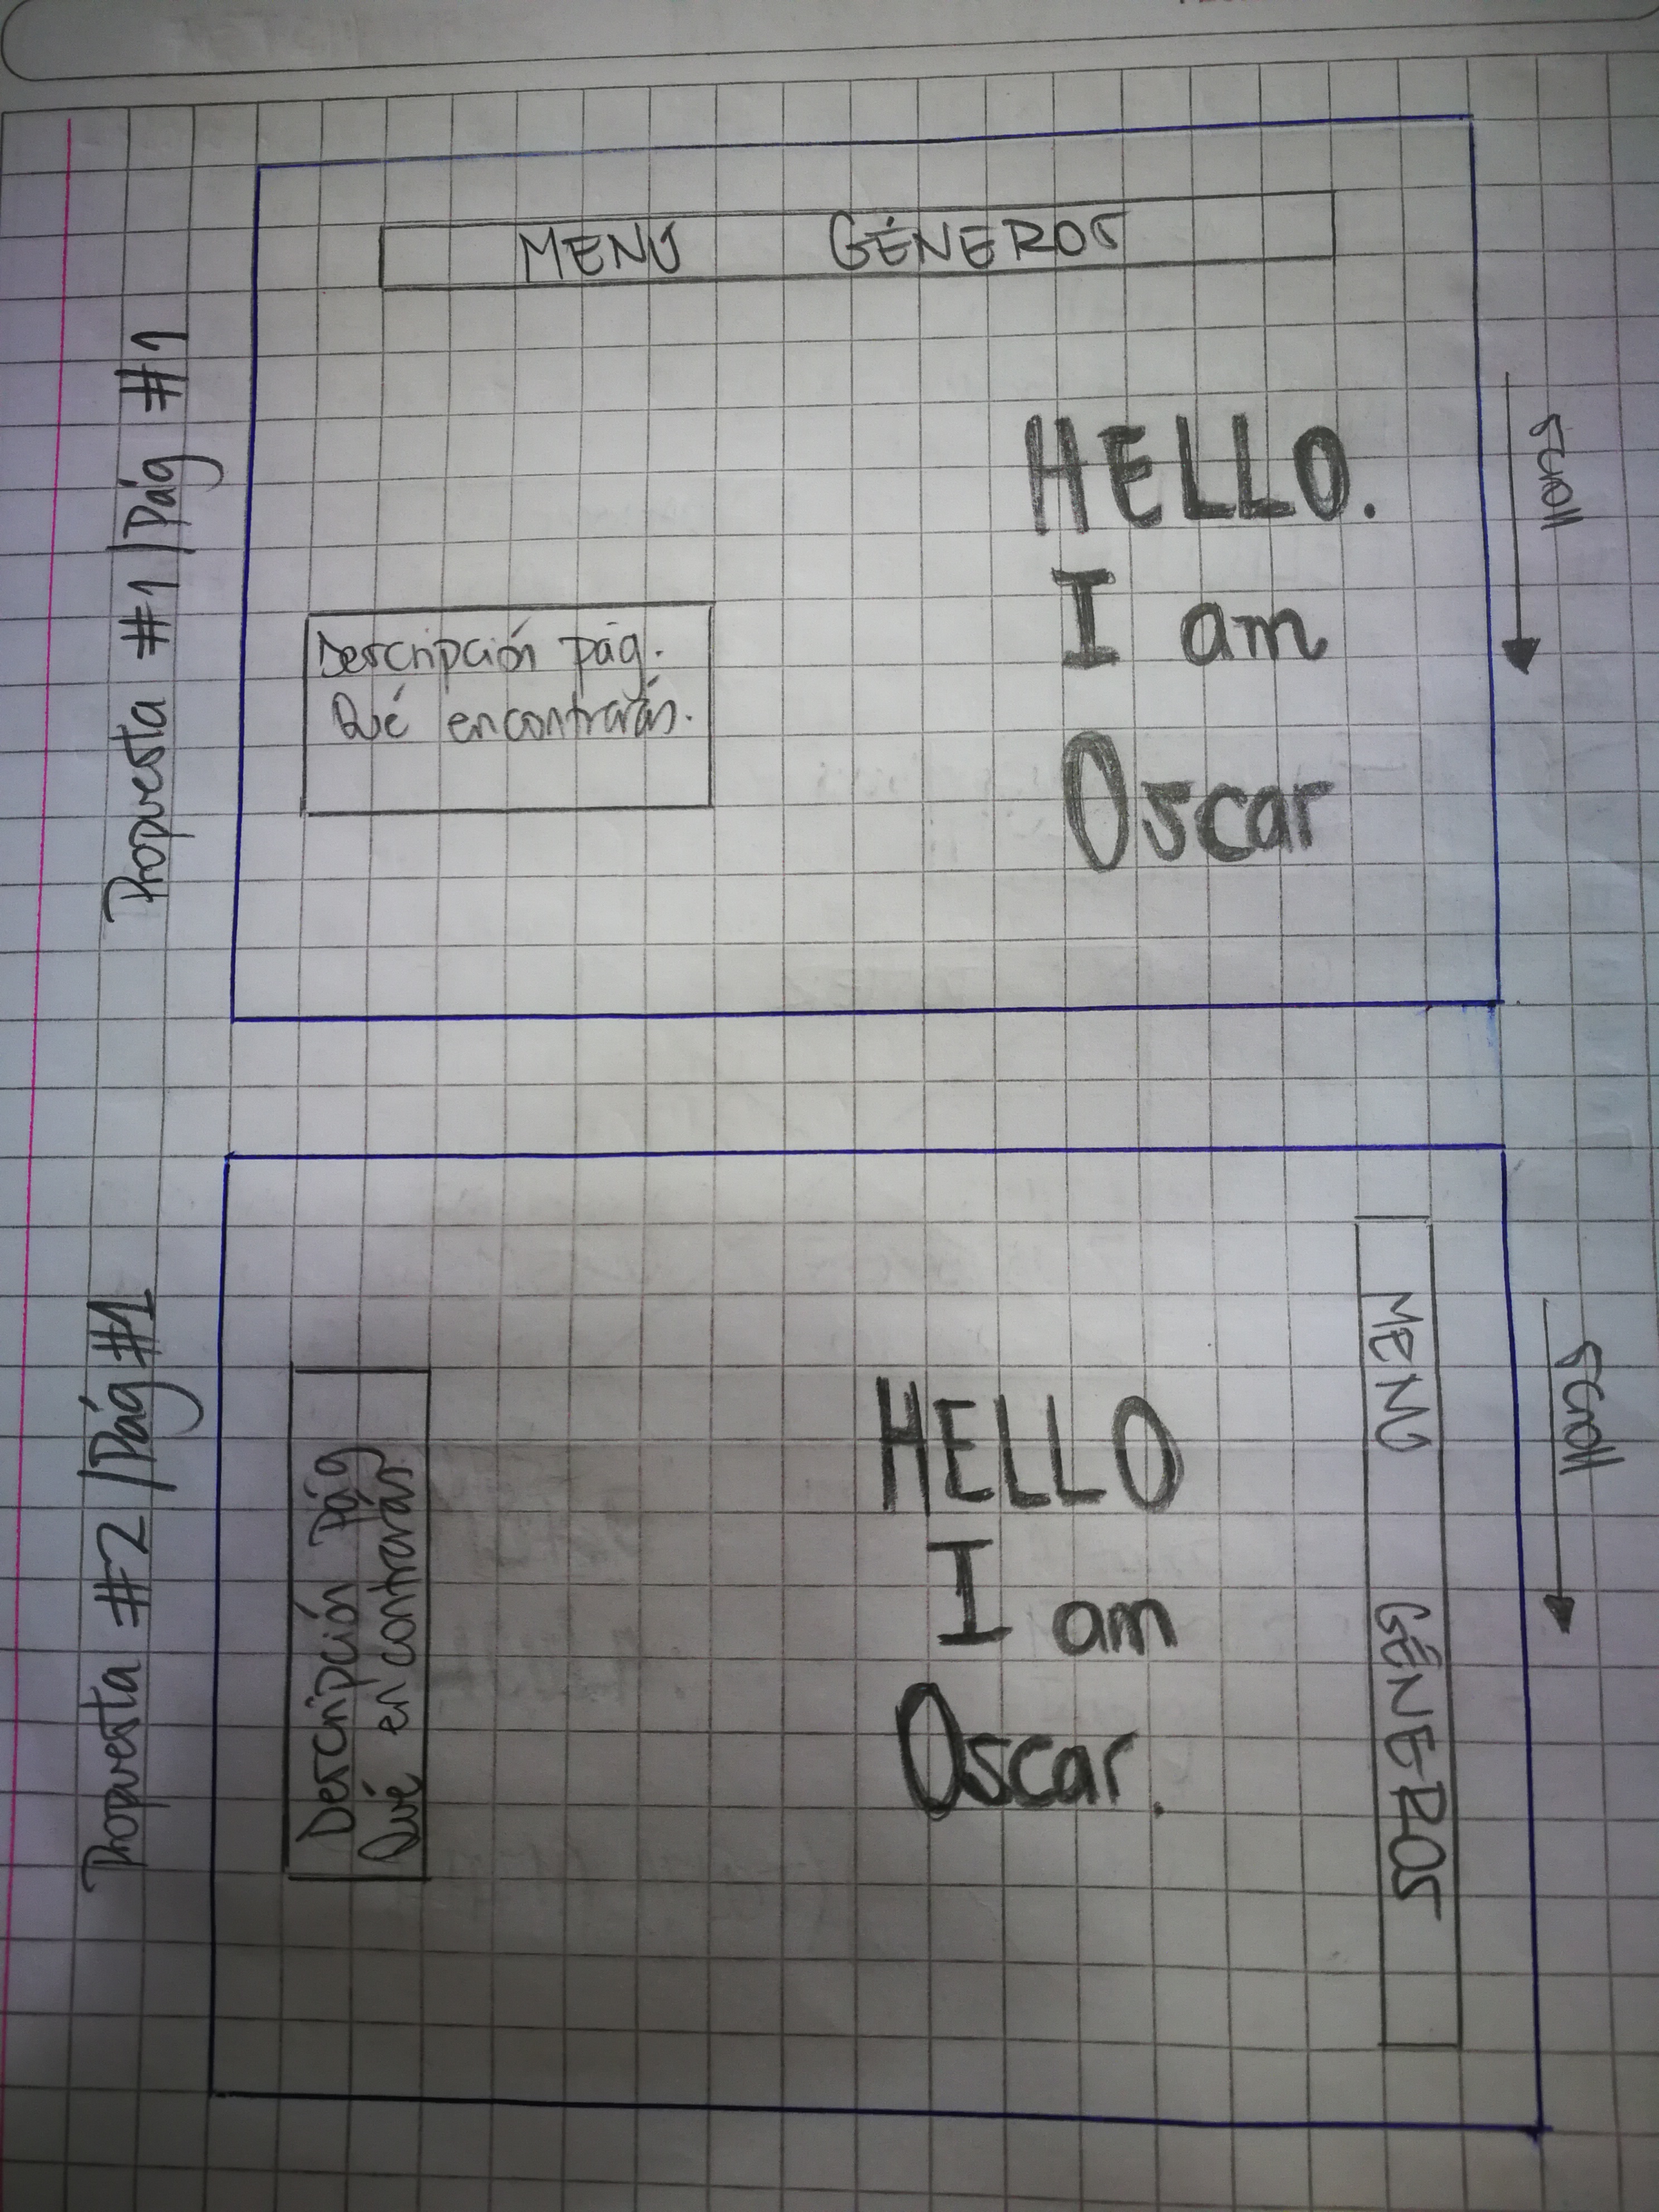 Propuesta #1 | Pág #1
MENU GÉNEROS
HELLO.
I am
Oscar
Descripción pág.
Qué encontrarás.
scroll
Propuesta #2 | Pág #1
Descripción Pág
Qué encontrarás
HELLO
I am
Oscar.
MENU GÉNEROS
scroll